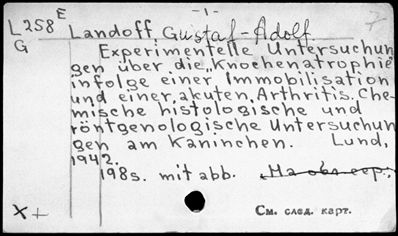 L258 E
G
- 1 -
Landoff, Gustaf-Adolf.
Experimentelle Untersuchun
gen über die, Knochenatrophie
infolge einer Immobilisation
und einer, akuten, Arthritis. Che-
mische histologische und
röntgenologische Untersuchun
gen am Kaninchen. Lund,
1942.
198s. mit abb.
X +
См. след. карт.